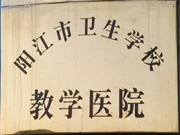 阳江市卫生学校
教学医院